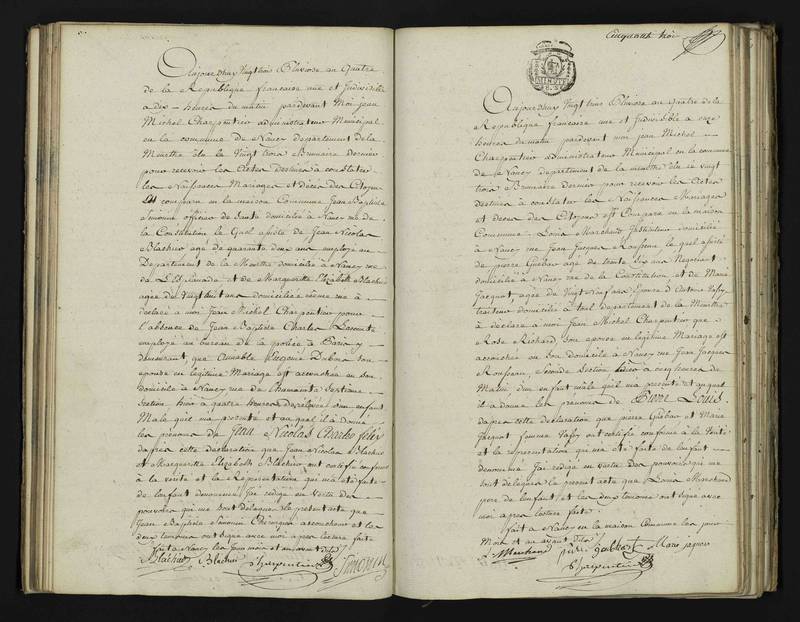 Aujourdhuy Vingt trois Pluviose an Quatre
de la Republique francaise une et Indivisible
a dix heures du matin pardevant Moi jean
Michel Charpentier administrateur Municipal
en la commune de Nancy departement de la
Meurthe élu le Vingt trois Brumaire dernier
pour recevoir les Actes destinés a constater
les Naissances Mariages et décès des Citoyens
Est comparu en la maison Commune Jean Baptiste
Simonin officier de Santé domicilié à Nancy rue de
la Constitution le Quel assisté de Jean Nicolas
Blachier agé de quarante deux ans employé au
Departement de la Meurthe domicilié à Nancy rue
de et de Marguerite Elizabeth Blachier
agée de Vingt huit ans domiciliée même rue a
déclaré a moi Jean Michel Charpentier pour
l'absence de Jean Baptiste Charles Lacomte
employé au bureau de la police à Paris y
demeurant que Dubois son
epouse en legitime Mariage est accouchée en son
domicile à Nancy rue de
Section hier à quatre heures d'un enfant
Male qu'il m'a presenté et auquel il a donné
les prenoms de Jean Nicolas Charles felix
d'après cette declaration que Jean Nicolas Blachier
et Marguerite Elizabeth Blachier ont certifié conforme
à la verité et la Representation qui m'a été faite
de l'enfant denommé j'ai redigé en Vertu des
pouvoirs qui me sont délegués le present acte que
Jean Baptiste Simonin Chirurgien accoucheur et les
deux temoins ont signé avec moi après lecture faite
fait à Nancy les jour mois et an avant dits
Blachier Blachier Charpentier Simonin
Cinquante trois
Aujourdhuy Vingt trois Pluviose an quatre de la
Republique francaise une et indivisible à onze
heures du matin pardevant moi jean Michel
Charpentier administrateur Municipal en la commune
de Nancy departement de la meurthe élu le vingt
trois Brumaire dernier pour recevoir les Actes
destinés à constater les Naissances Mariages
et décès des Citoyens est Comparu en la maison
Commune Louis Marchand Instituteur domicilié
à Nancy rue Jean Jacques Rousseau le quel assisté
de pierre agé de trente six ans Negociant
domicilié à Nancy rue de la Constitution et de Marie
Jacquot, agée de Vingt Neuf ans Epouse d'Antoine
traiteur domicilié à toul departement de la Meurthe
à déclaré à moi Jean Michel Charpentier que
Rose Richard, son epouse en legitime Mariage est
accouchée en son Domicile à Nancy rue Jean Jacques
Rousseau, Seconde Section hier à cinq heures du
Matin d'un enfant mâle qu'il m'a presenté et auquel
il a donné les prenoms de Pierre Louis
d'après cette declaration que pierre et Marie
Jacquot femme ont certifié conforme à la Verité
et la representation qui m'a été faite de l'enfant
denommé J'ai redigé en vertu des pouvoirs qui me
sont delegués le present acte que Louis Marchand
pere de l'enfant et les deux temoins ont signé avec
moi après lecture faite
fait à Nancy en la maison Commune les jour
Mois et an avant dits
L. Marchand pierre Marie jaquot
Charpentier